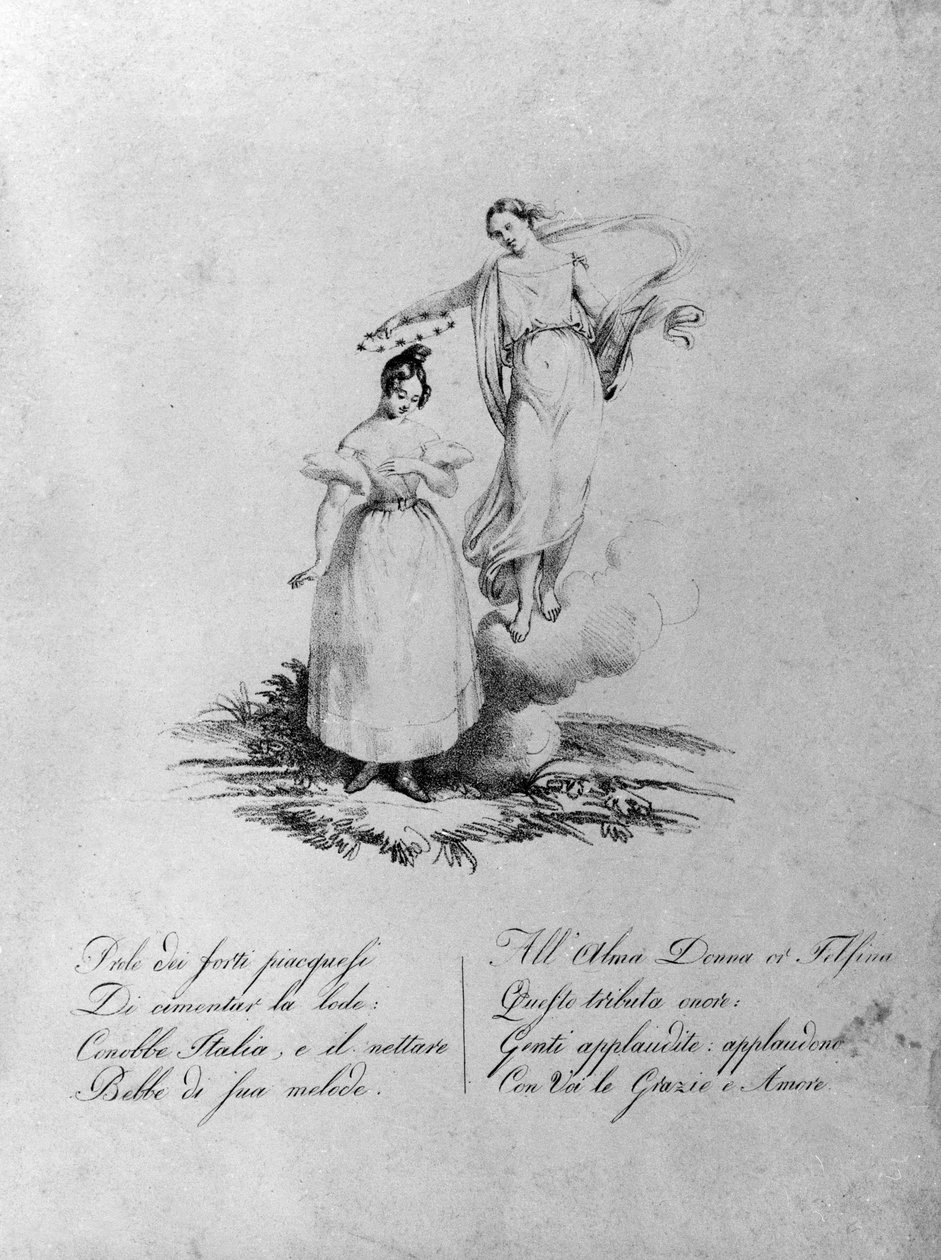 Prole dei forti piacquesi
Di cimentar la lode:
Conobbe Italia, e il nettare
Bebbe di sua melode.
All'Alma Donna or Felsina
Questo tributa onore:
Genti applaudite: applaudono
Con Voi le Grazie e Amore.